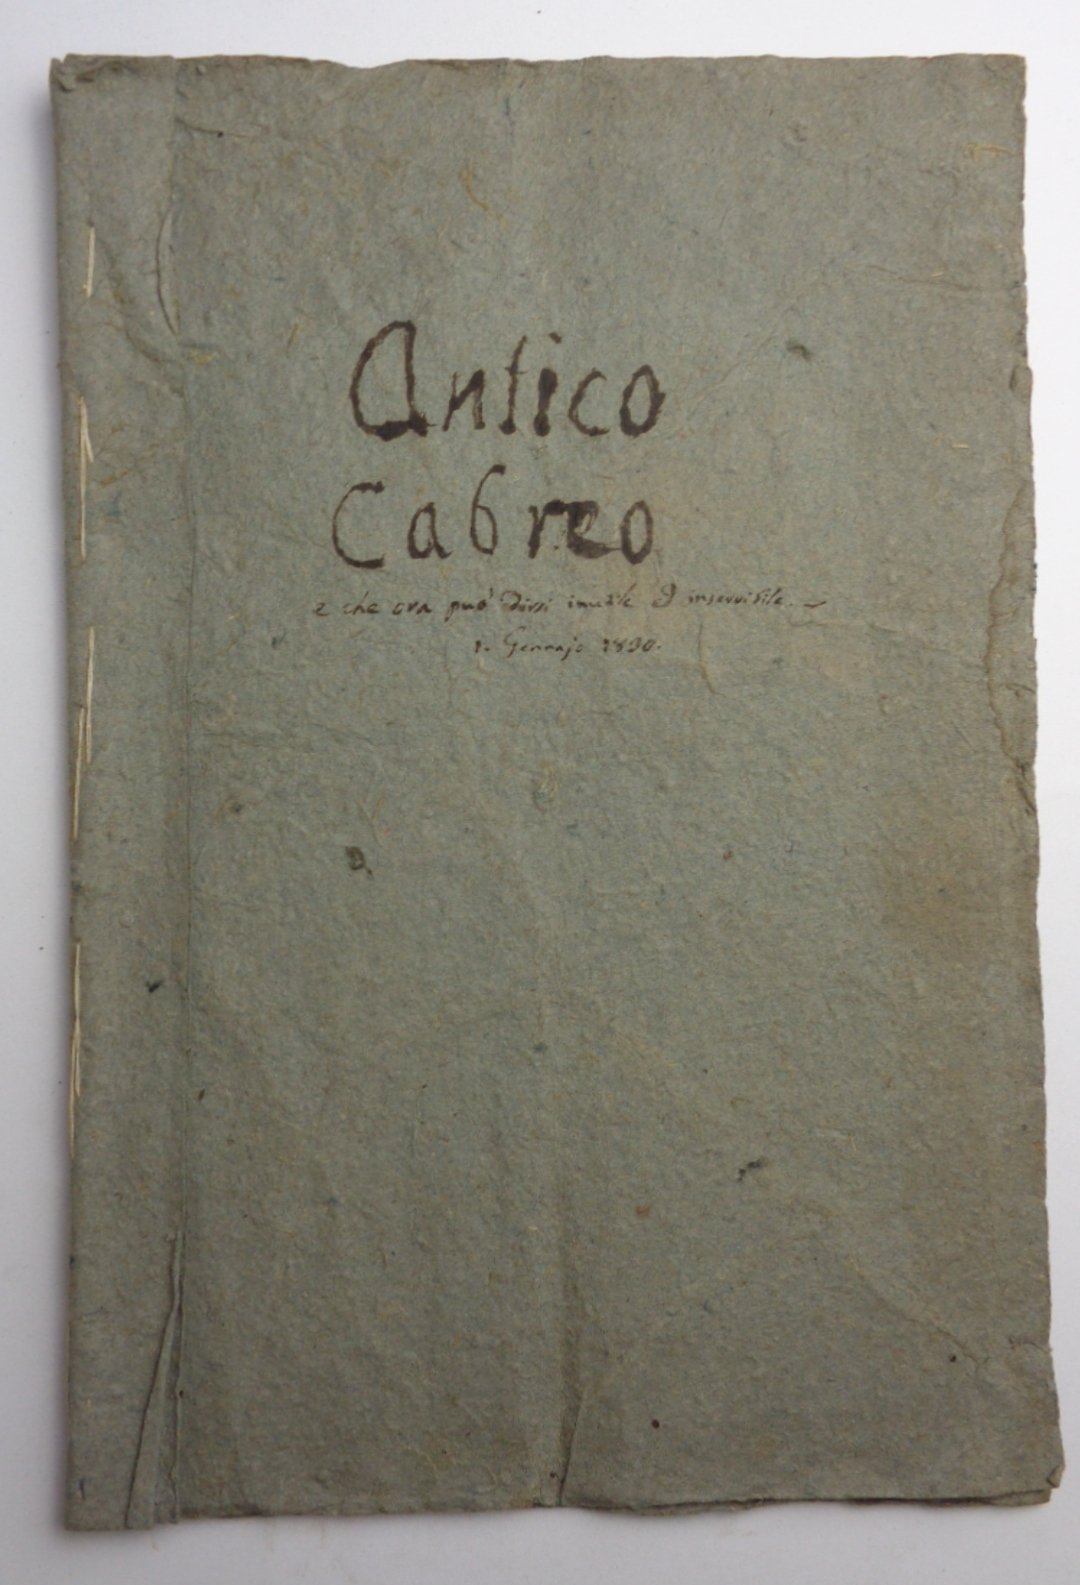 Antico
Cabreo
e che ora può dirsi inutile ed inservibile.
1. Gennajo 1830.